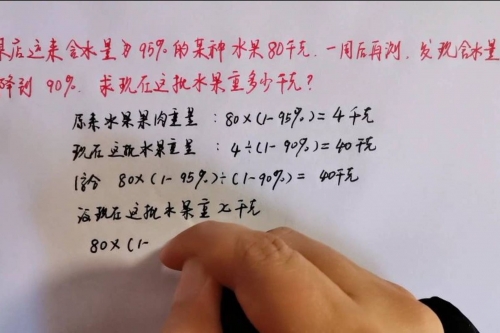 果店运来含水量为95%的某种水果80千克.一周后再测,发现含水量
降到90%.求现在这批水果重多少千克?
原来水果果肉重量:80×(1-95%)=4千克
现在这批水果重量:4÷(1-90%)=40千克
综合 80×(1-95%)÷(1-90%)=40千克
设现在这批水果重x千克
80×(1-